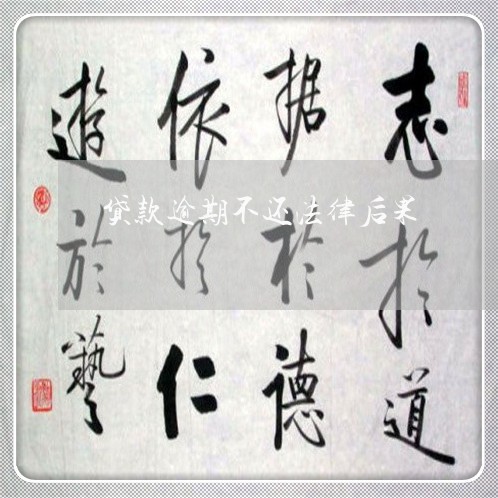 志於道
据於德
依於仁
遊於藝
贷款逾期不还法律后果